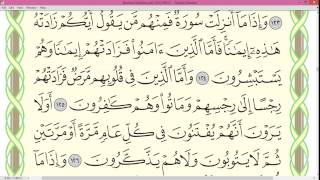 ١٢٣ وَإِذَا مَآ أُنزِلَتْ سُورَةٌ فَمِنْهُم مَّن يَقُولُ أَيُّكُمْ زَادَتْهُ
هَٰذِهِۦٓ إِيمَٰنًا ۚ فَأَمَّا ٱلَّذِينَ ءَامَنُوا۟ فَزَادَتْهُمْ إِيمَٰنًا وَهُمْ
يَسْتَبْشِرُونَ ١٢٤ وَأَمَّا ٱلَّذِينَ فِى قُلُوبِهِم مَّرَضٌ فَزَادَتْهُمْ
رِجْسًا إِلَىٰ رِجْسِهِمْ وَمَاتُوا۟ وَهُمْ كَٰفِرُونَ ١٢٥ أَوَلَا
يَرَوْنَ أَنَّهُمْ يُفْتَنُونَ فِى كُلِّ عَامٍ مَّرَّةً أَوْ مَرَّتَيْنِ
ثُمَّ لَا يَتُوبُونَ وَلَا هُمْ يَذَّكَّرُونَ ١٢٦ وَإِذَا مَآ